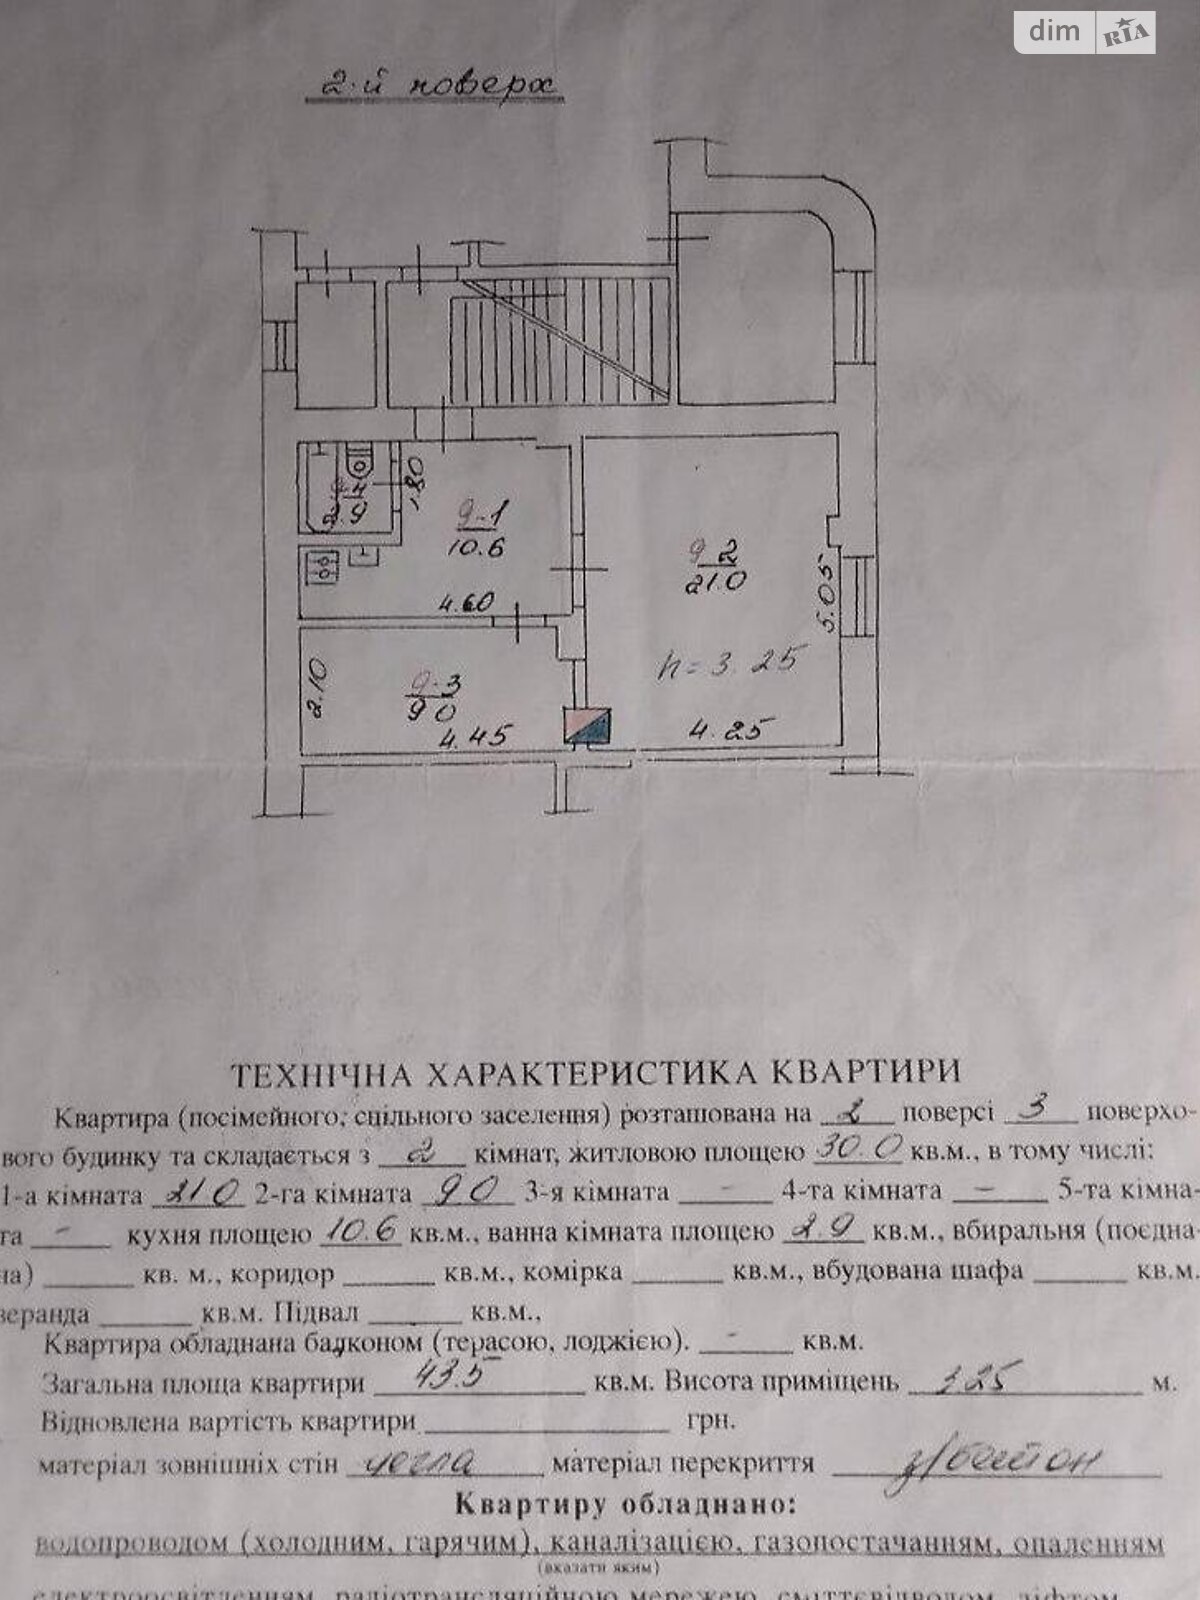 dim RIA
2-й поверх
2.9
1.80
9-1
10.6
4.60
9 2
21.0
5.05
h = 3.25
4.25
2.10
9-3
9 0
4.45
ТЕХНІЧНА ХАРАКТЕРИСТИКА КВАРТИРИ
Квартира (посімейного, спільного заселення) розташована на 2 поверсі 3 поверхо-
вого будинку та складається з 2 кімнат, житловою площею 30.0 кв.м., в тому числі:
1-а кімната 21 0 2-га кімната 9 0 3-я кімната - 4-та кімната - 5-та кімна-
та - кухня площею 10.6 кв.м., ванна кімната площею 2.9 кв.м., вбиральня (поєдна-
на) ______ кв. м., коридор ______ кв.м., комірка ______ кв.м., вбудована шафа ______ кв.м.
веранда ______ кв.м. Підвал ______ кв.м.,
Квартира обладнана балконом (терасою, лоджією). - кв.м.
Загальна площа квартири 43.5 кв.м. Висота приміщень 3.25 м.
Відновлена вартість квартири ______ грн.
матеріал зовнішніх стін цегла матеріал перекриття з/бетон
Квартиру обладнано:
водопроводом (холодним, гарячим), каналізацією, газопостачанням, опаленням
(вказати яким)
електроосвітленням, радіотрансляційною мережею, сміттєвідводом, ліфтом